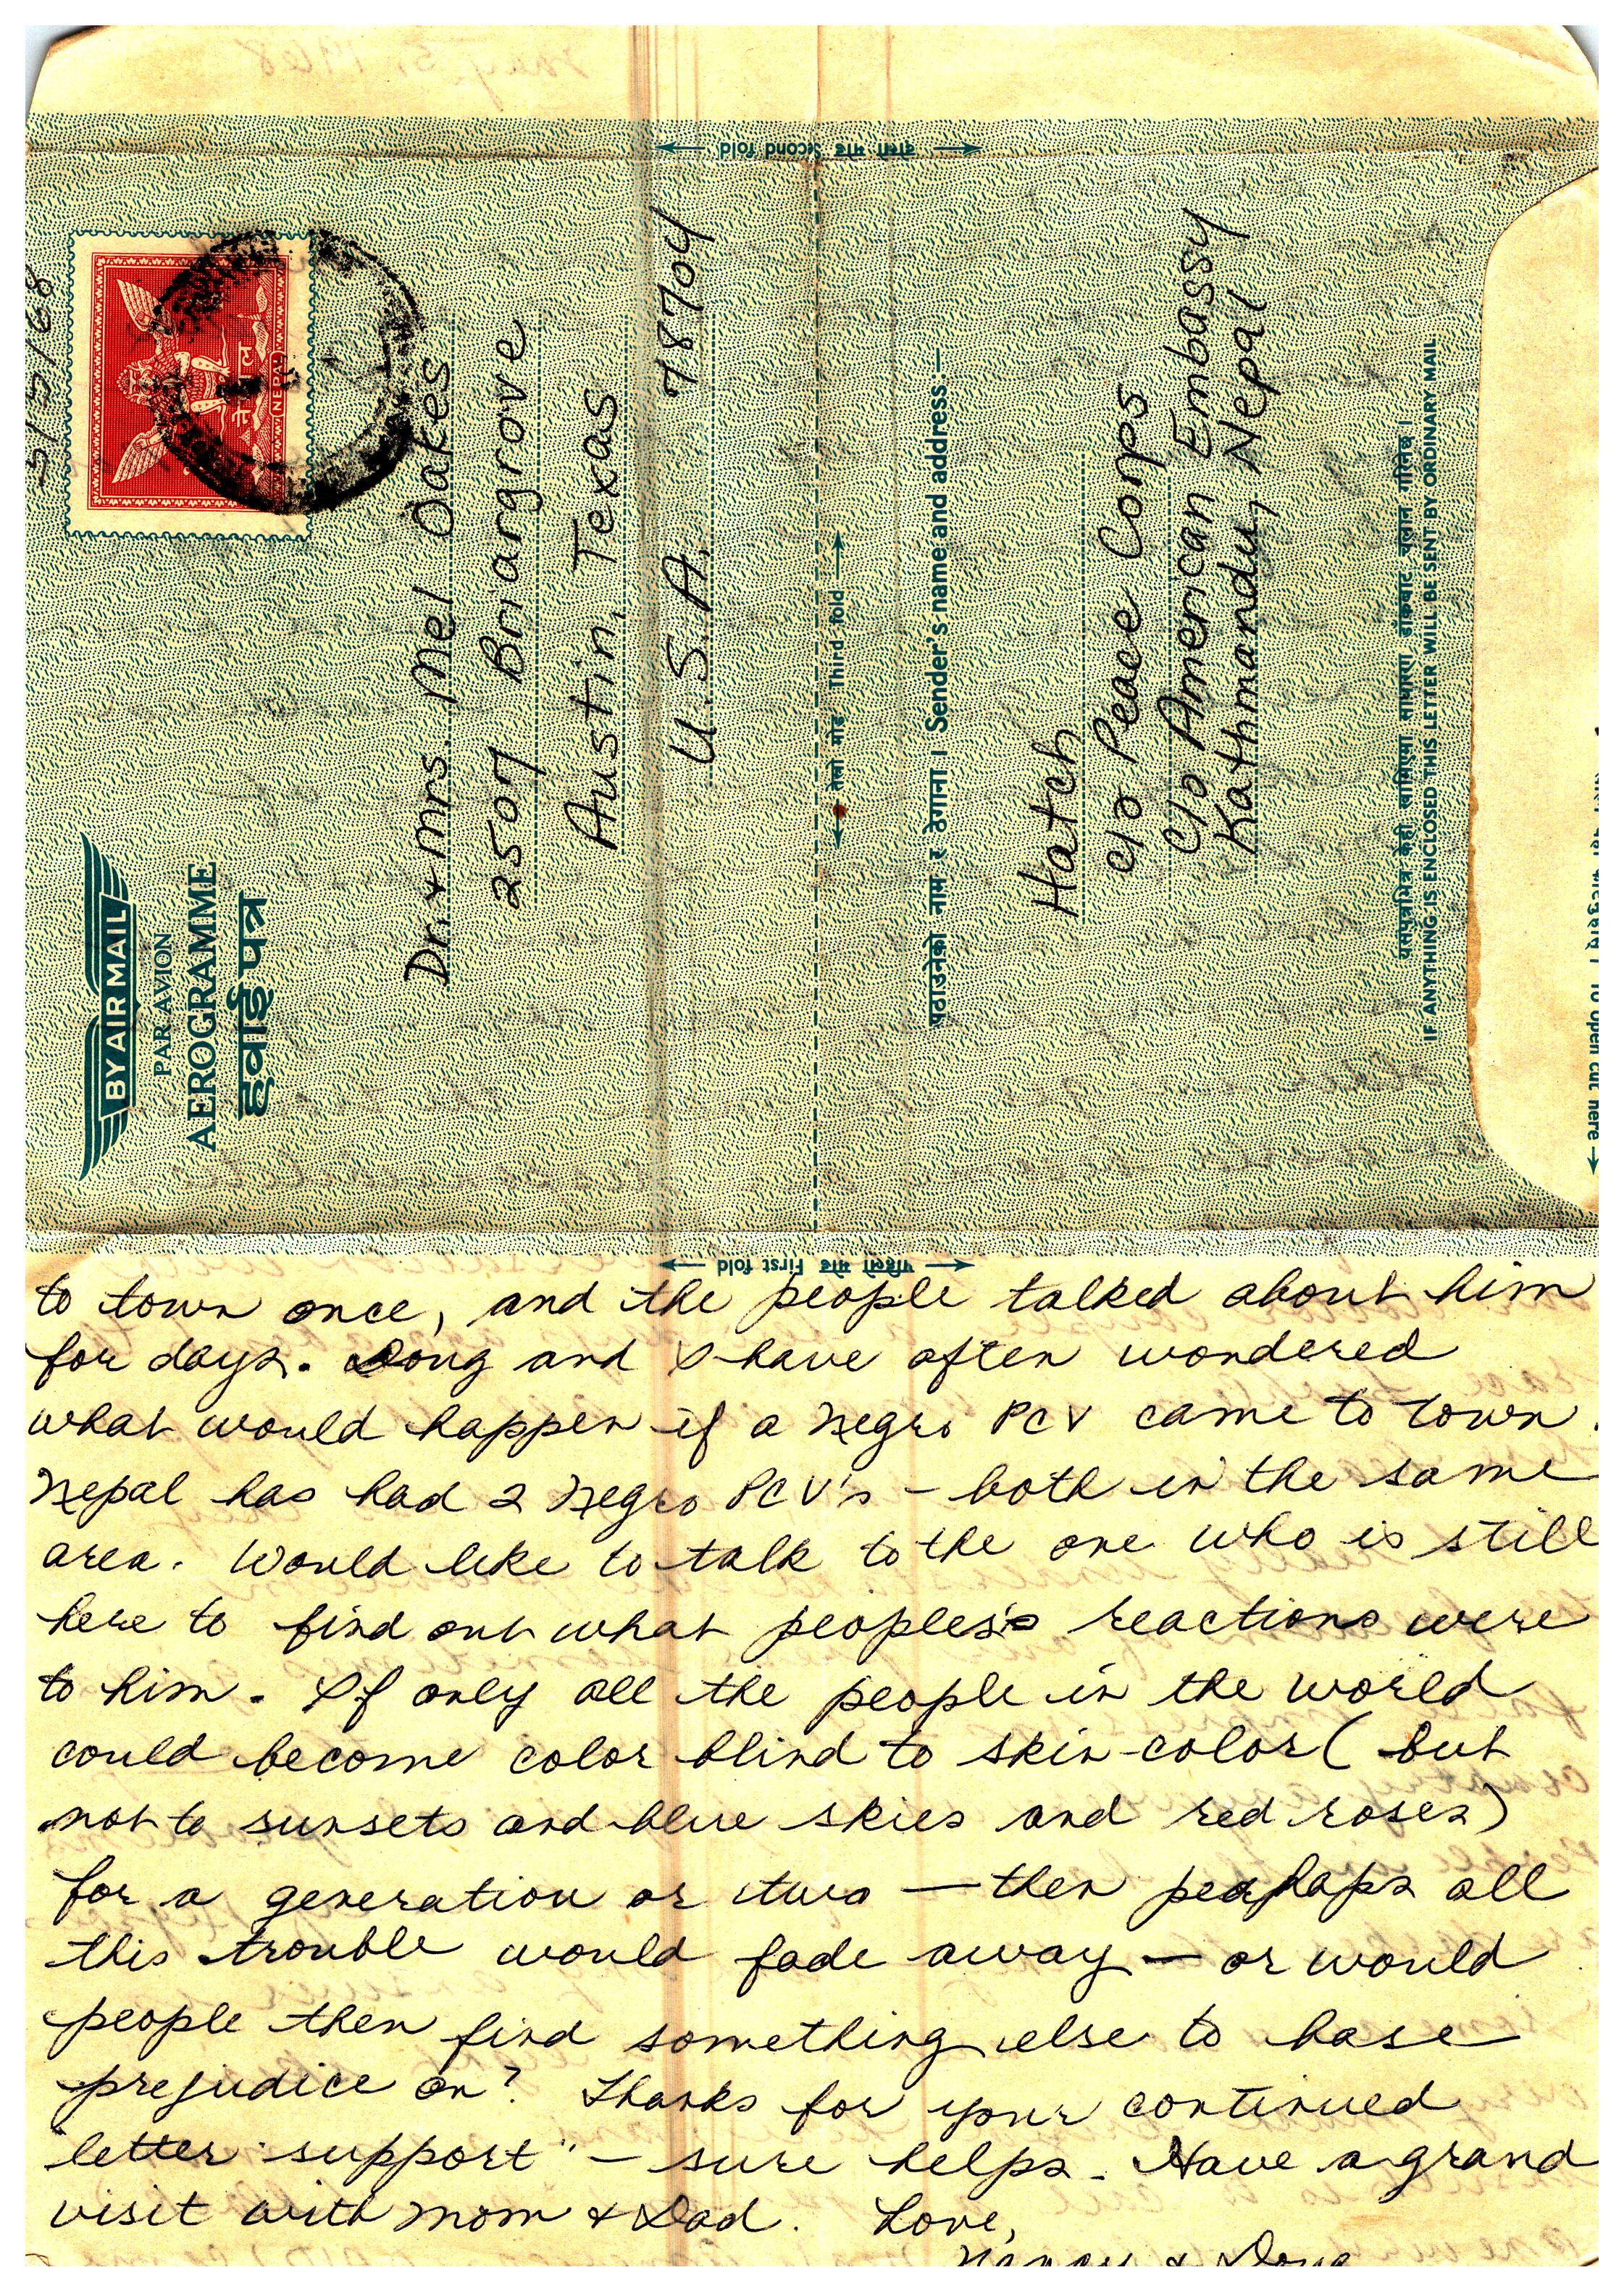 May 5, 1968
दोस्रो मोड Second fold
5/5/68
नेपाल
NEPAL
BY AIR MAIL
PAR AVION
AEROGRAMME
हवाई पत्र
Dr. & Mrs. Mel Oakes
2507 Briargrove
Austin, Texas
U.S.A. 78704
तेस्रो मोड Third fold
पठाउनेको नाम र ठेगाना । Sender's name and address:—
Hatch
c/o Peace Corps
c/o American Embassy
Kathmandu, Nepal
यसपत्रभित्र केही राखिएमा साधारण डाँकबाट चलान गरिनेछ ।
IF ANYTHING IS ENCLOSED THIS LETTER WILL BE SENT BY ORDINARY MAIL
To open cut here
पहिलो मोड First fold
to town once, and the people talked about him
for days. Doug and I have often wondered
what would happen if a Negro PCV came to town.
Nepal has had 2 Negro PCV's – both in the same
area. Would like to talk to the one who is still
here to find out what peoples's reactions were
to him. If only all the people in the world
could become color blind to skin-color (but
not to sunsets and blue skies and red roses)
for a generation or two — then perhaps all
this trouble would fade away — or would
people then find something else to base
prejudice on? Thanks for your continued
"letter support" – sure helps. Have a grand
visit with Mom & Dad. Love,
Nancy & Doug